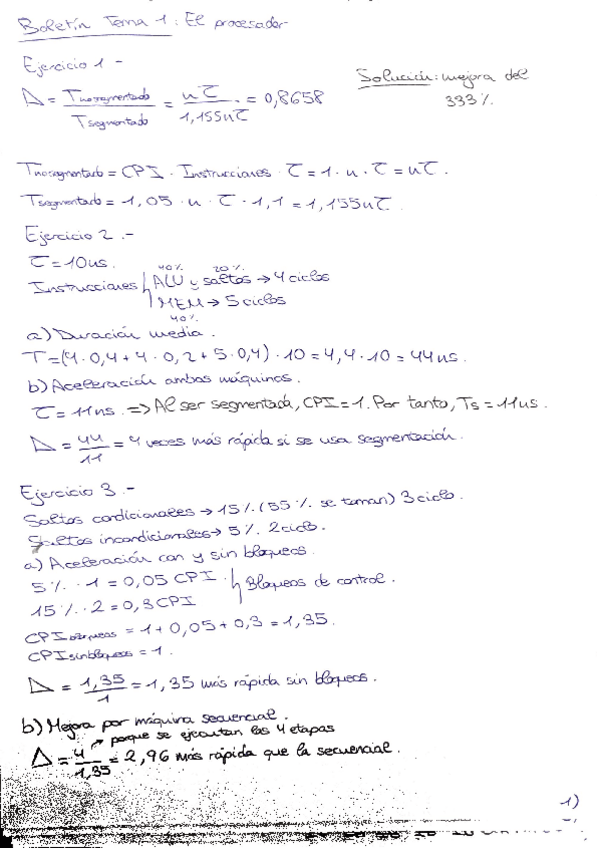 Boletín Tema 1: El procesador
Ejercicio 1 -
Δ = Tnosegmentado / Tsegmentado = nτ / 1,155nτ = 0,8658
Solución: mejora del
333%.
Tnosegmentado = CPI · Instrucciones · τ = 1 · n · τ = nτ.
Tsegmentado = 1,05 · n · τ · 1,1 = 1,155nτ.
Ejercicio 2.-
τ = 10ns.
40% 20%
Instrucciones ALU y saltos → 4 ciclos
MEM → 5 ciclos
40%
a) Duración media.
T = (4 · 0,4 + 4 · 0,2 + 5 · 0,4) · 10 = 4,4 · 10 = 44ns.
b) Aceleración ambas máquinas.
τ = 11ns. => Al ser segmentada, CPI = 1. Por tanto, Ts = 11ns.
Δ = 44/11 = 4 veces más rápida si se usa segmentación.
Ejercicio 3.-
Saltos condicionales → 15% (55% se toman) 3 ciclo.
Saltos incondicionales → 5% 2 ciclo.
a) Aceleración con y sin bloqueos.
5% · 1 = 0,05 CPI
Bloqueos de control.
15% · 2 = 0,3 CPI
CPI bloqueos = 1 + 0,05 + 0,3 = 1,35.
CPI sin bloqueos = 1.
Δ = 1,35/1 = 1,35 más rápida sin bloqueos.
b) Mejora por máquina secuencial.
→ porque se ejecutan las 4 etapas
Δ = 4/1,35 = 2,96 más rápida que la secuencial.
1)